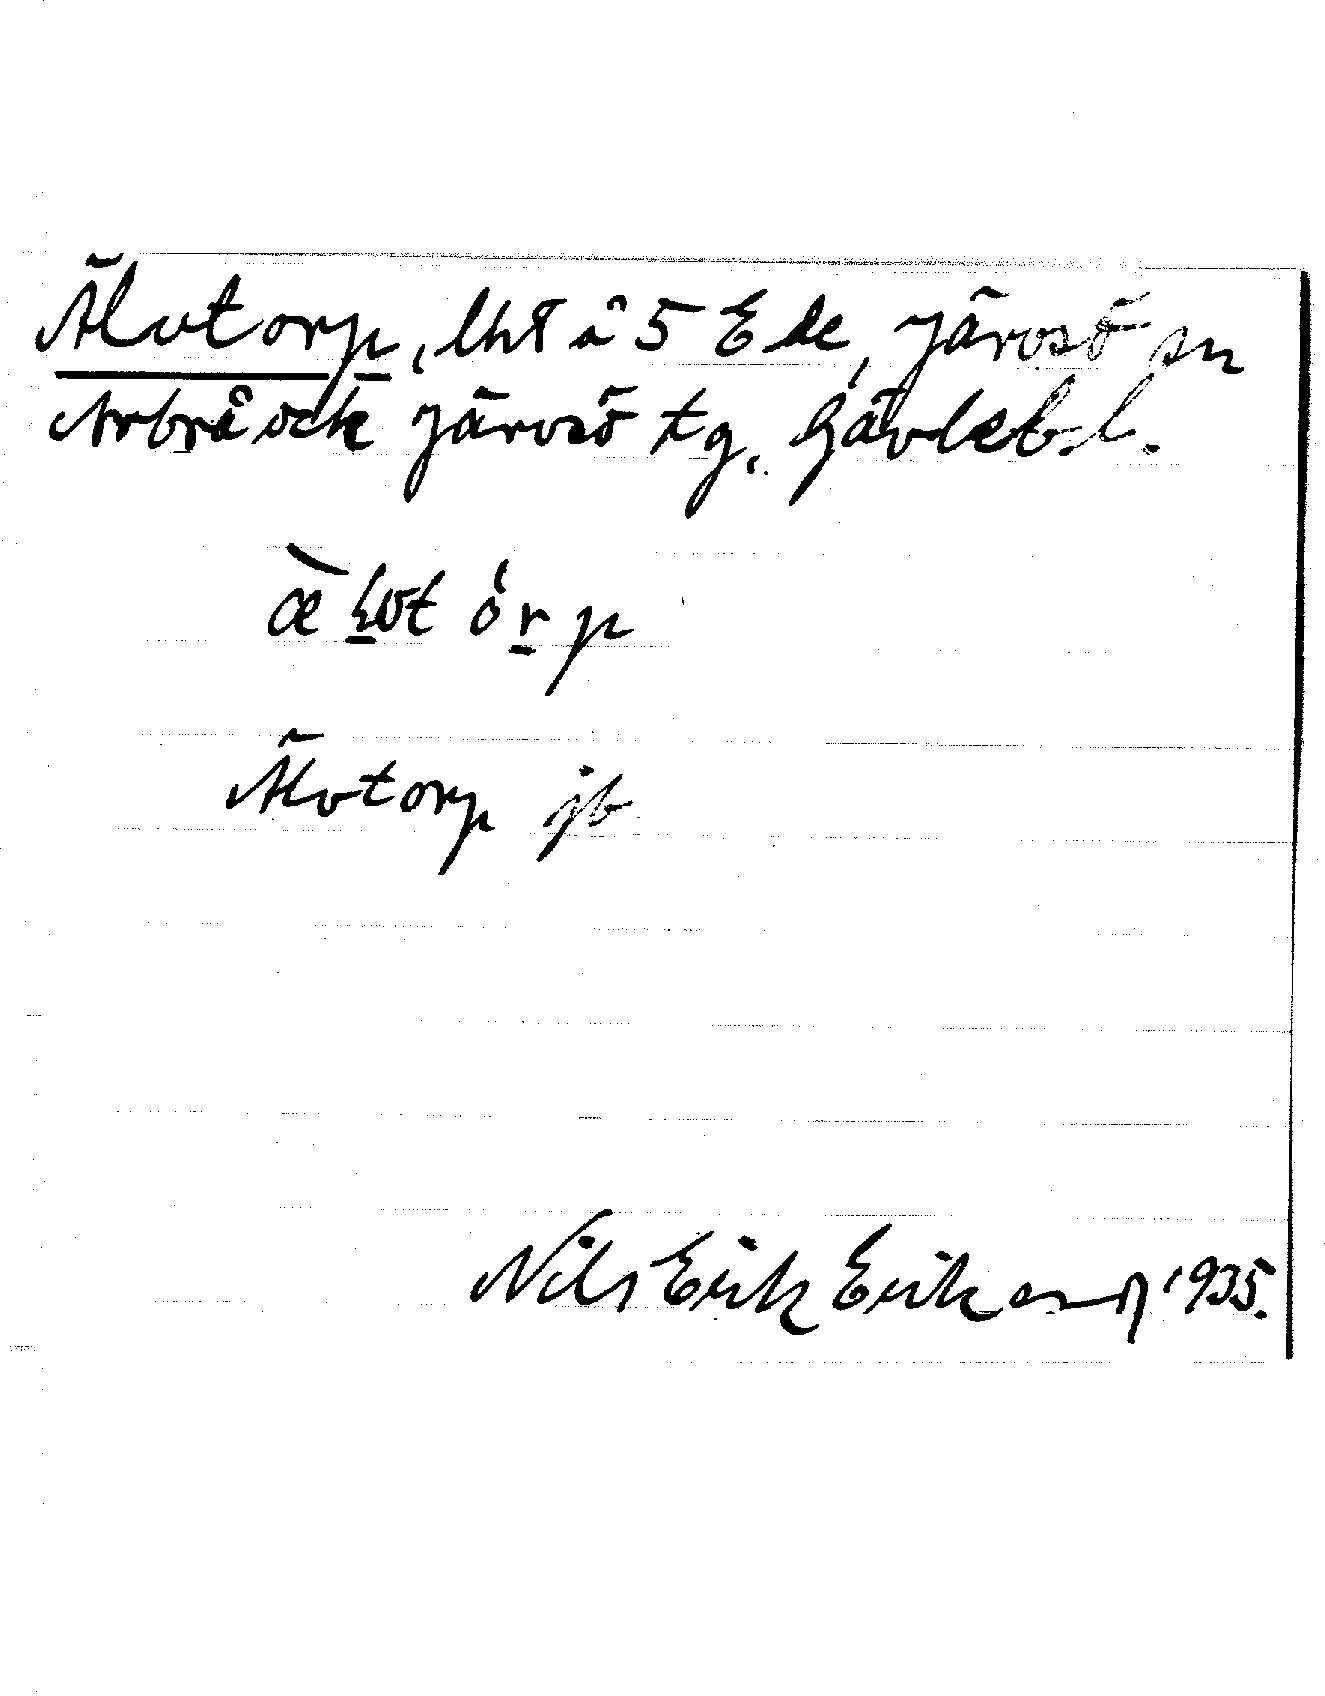 Älvtorp, lht å 5 Ede, Järvsö sn
Arbrå och Järvsö tg, Gävleb. l.
Älvtorp jb
Nils Erik Erikson 1935.